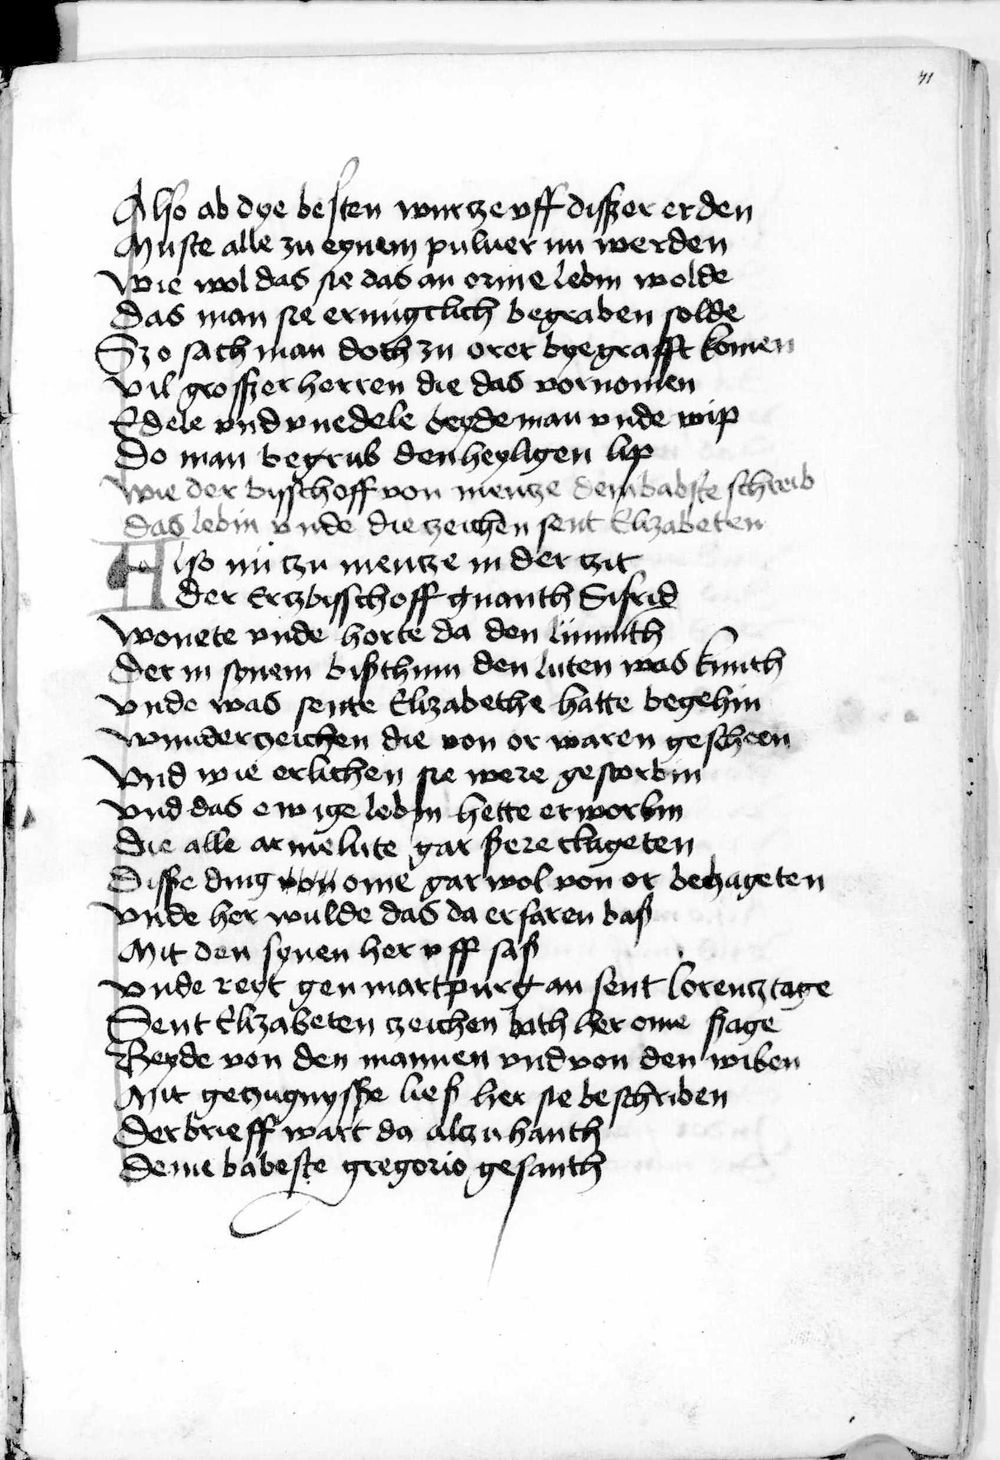 71
Also ab dye besten wurtze vff disszer erden
Muste alle zu eynem puluer nu werden
Wie wol das sie das an orme lebin wolde
Das man sie ermigclich begraben solde
Szo sach man doch zu orer byegrafft komen
Vil grosszer herren die das vornomen
Edele vnd vnedele beyde man vnde wip
Do man begrub den heyligen lip
Wie der bysschoff von mentze dem babste schreib
das lebin vnde die zceichen sent Elizabeten
Also nu tzu mentze in der tzit
der Ertzbysschoff gnanth Sifrid
Wonete vnde horte da den lümuth
Der in synem bißthum den luten was kunth
Vnde was sente Elizabethe hatte begehin
Wunderzceichen die von or waren gescheen
Vnd wie erlichen sie were gestorbin
Vnd das ewige lebin hette erworbin
Die alle armelute gar szere clageten
Disse ding von ome gar wol von or behageten
Vnde her wulde das da erfaren baß
Mit den synen her vff saß
Vnde reyt gen martpurg an sent lorentztage
Sent Elizabeten zceichen bath her ome szage
Beyde von den mannen vnd von den wiben
Mit getzugnysße ließ her sie beschriben
Der brieff wart da altzu hanth
Deme babeste gregorio gesanth